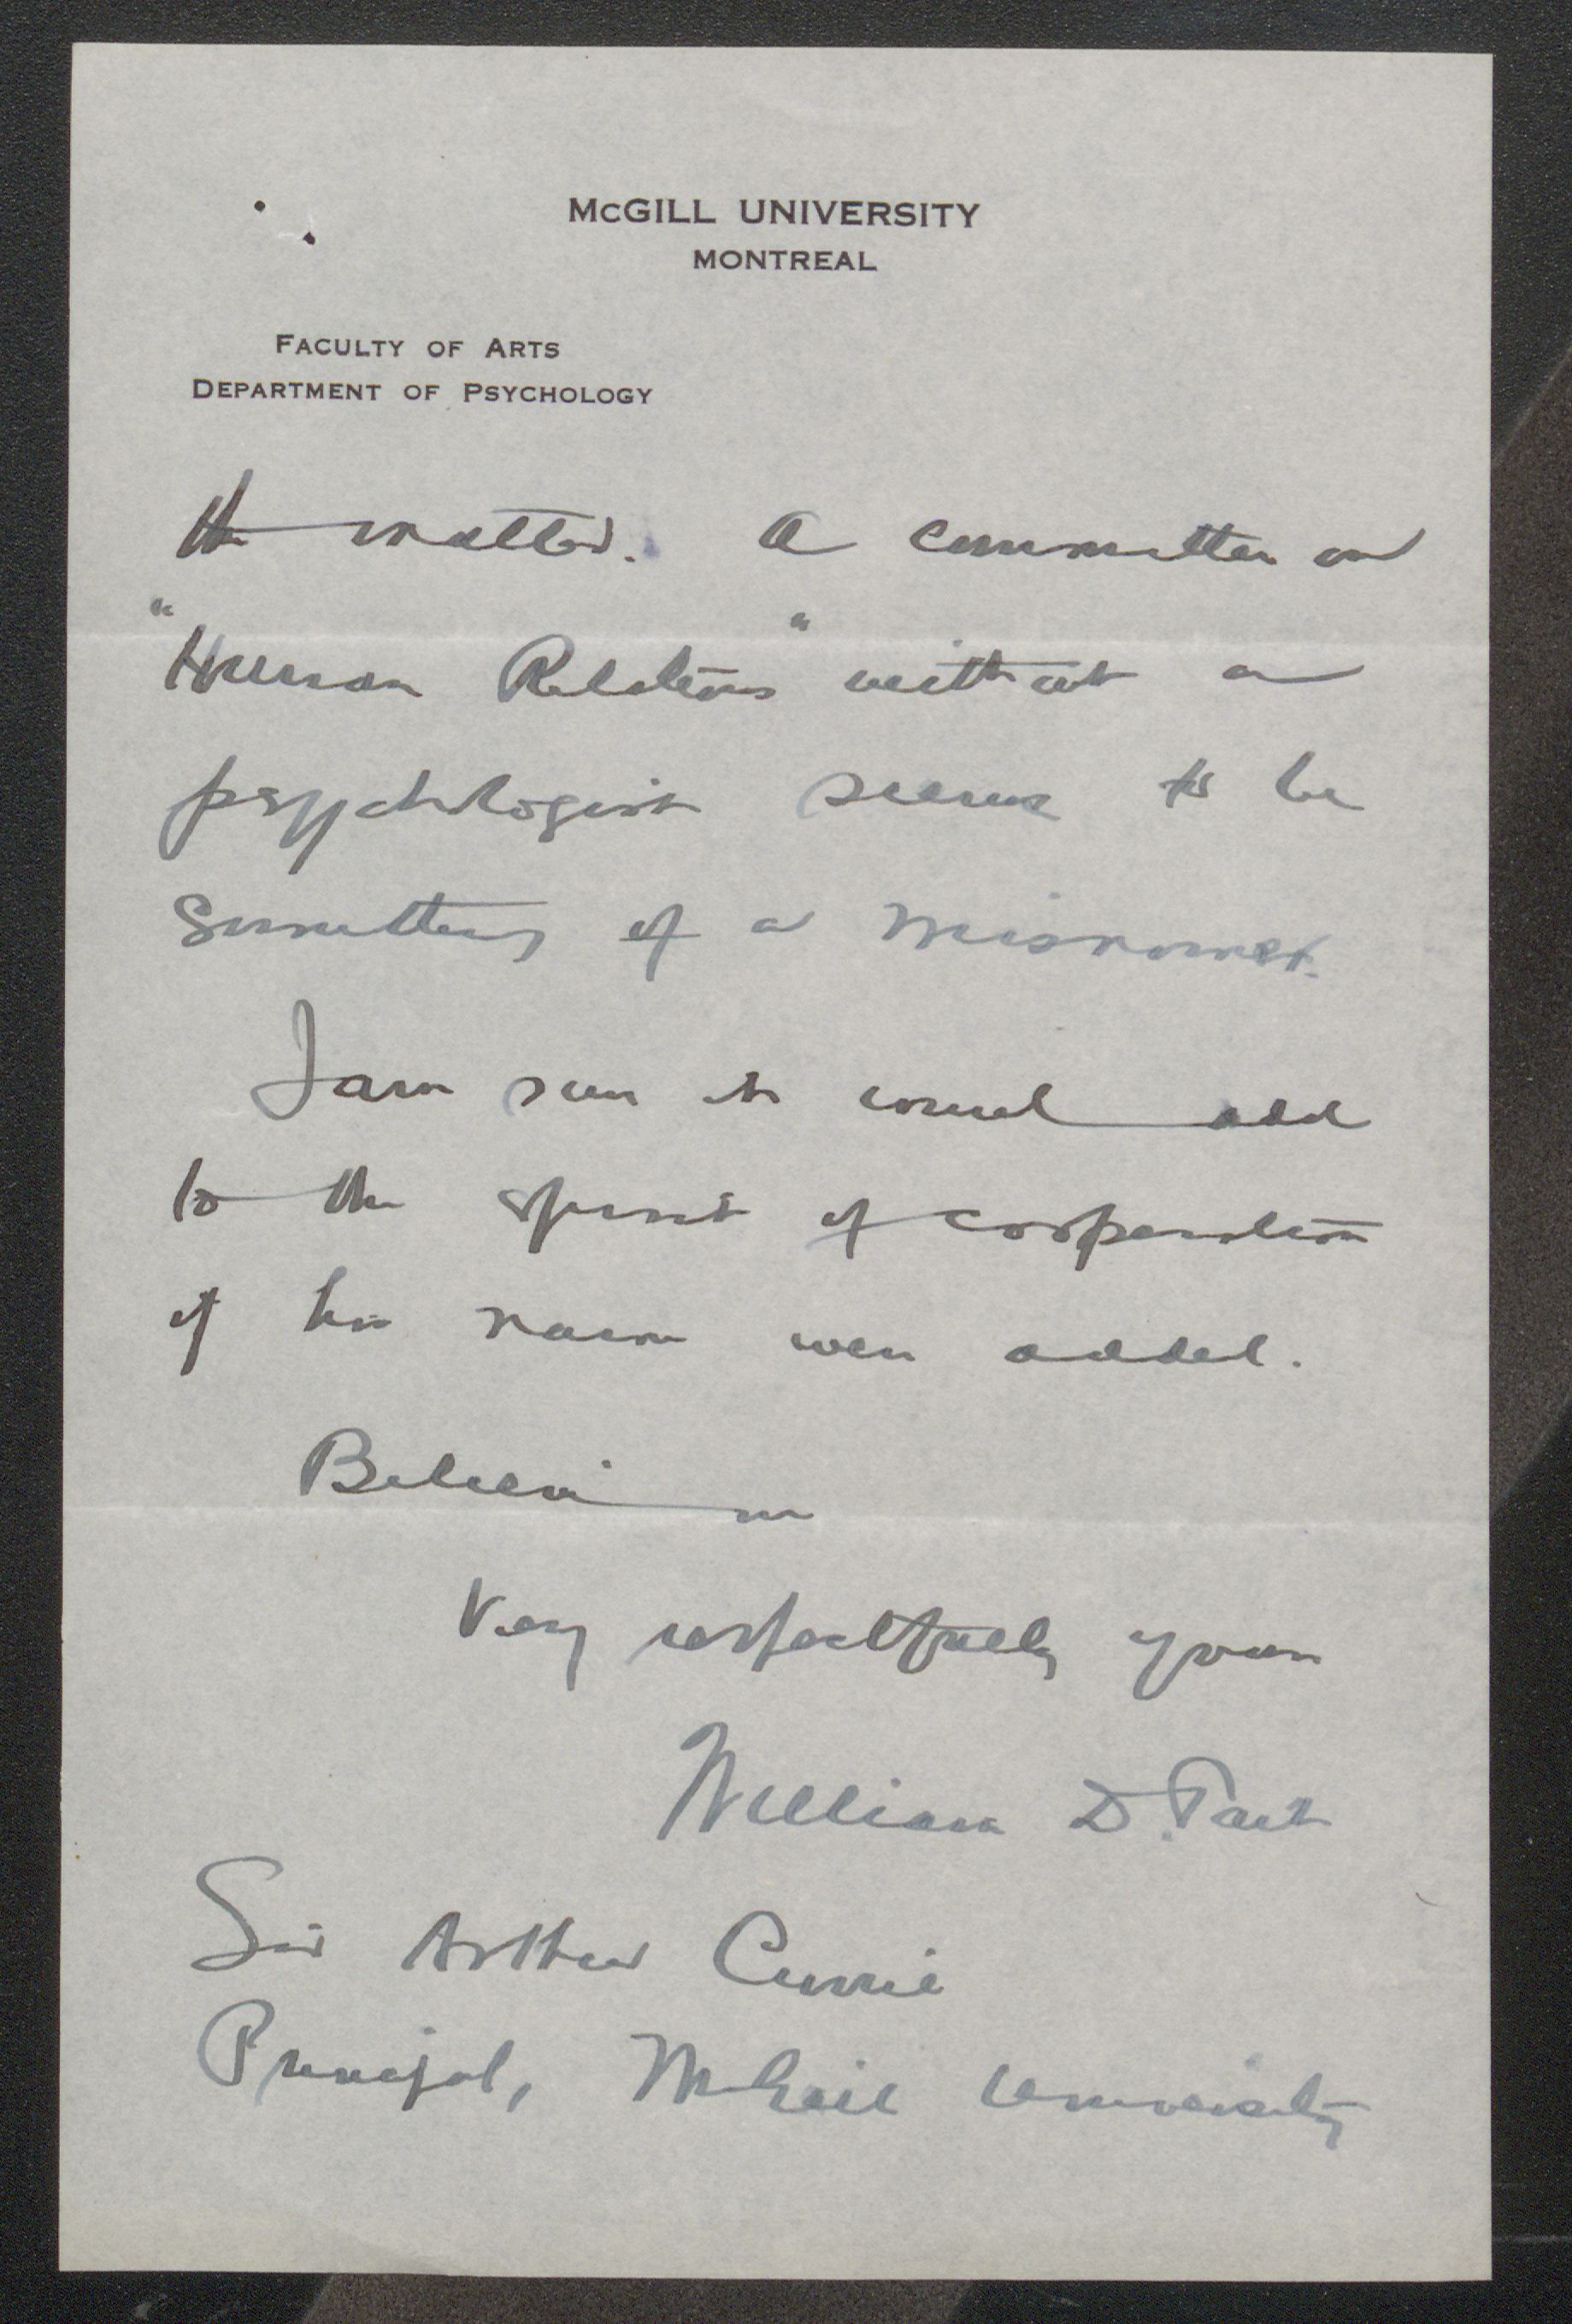 McGILL UNIVERSITY
MONTREAL
FACULTY OF ARTS
DEPARTMENT OF PSYCHOLOGY
the matter. A committee on
"Human Relations" without a
psychologist seems to be
something of a misnomer.
I am sure it would add
to the spirit of cooperation
if his name were added.
Believe me
Very respectfully yours
William D. Tait
Sir Arthur Currie
Principal, McGill University